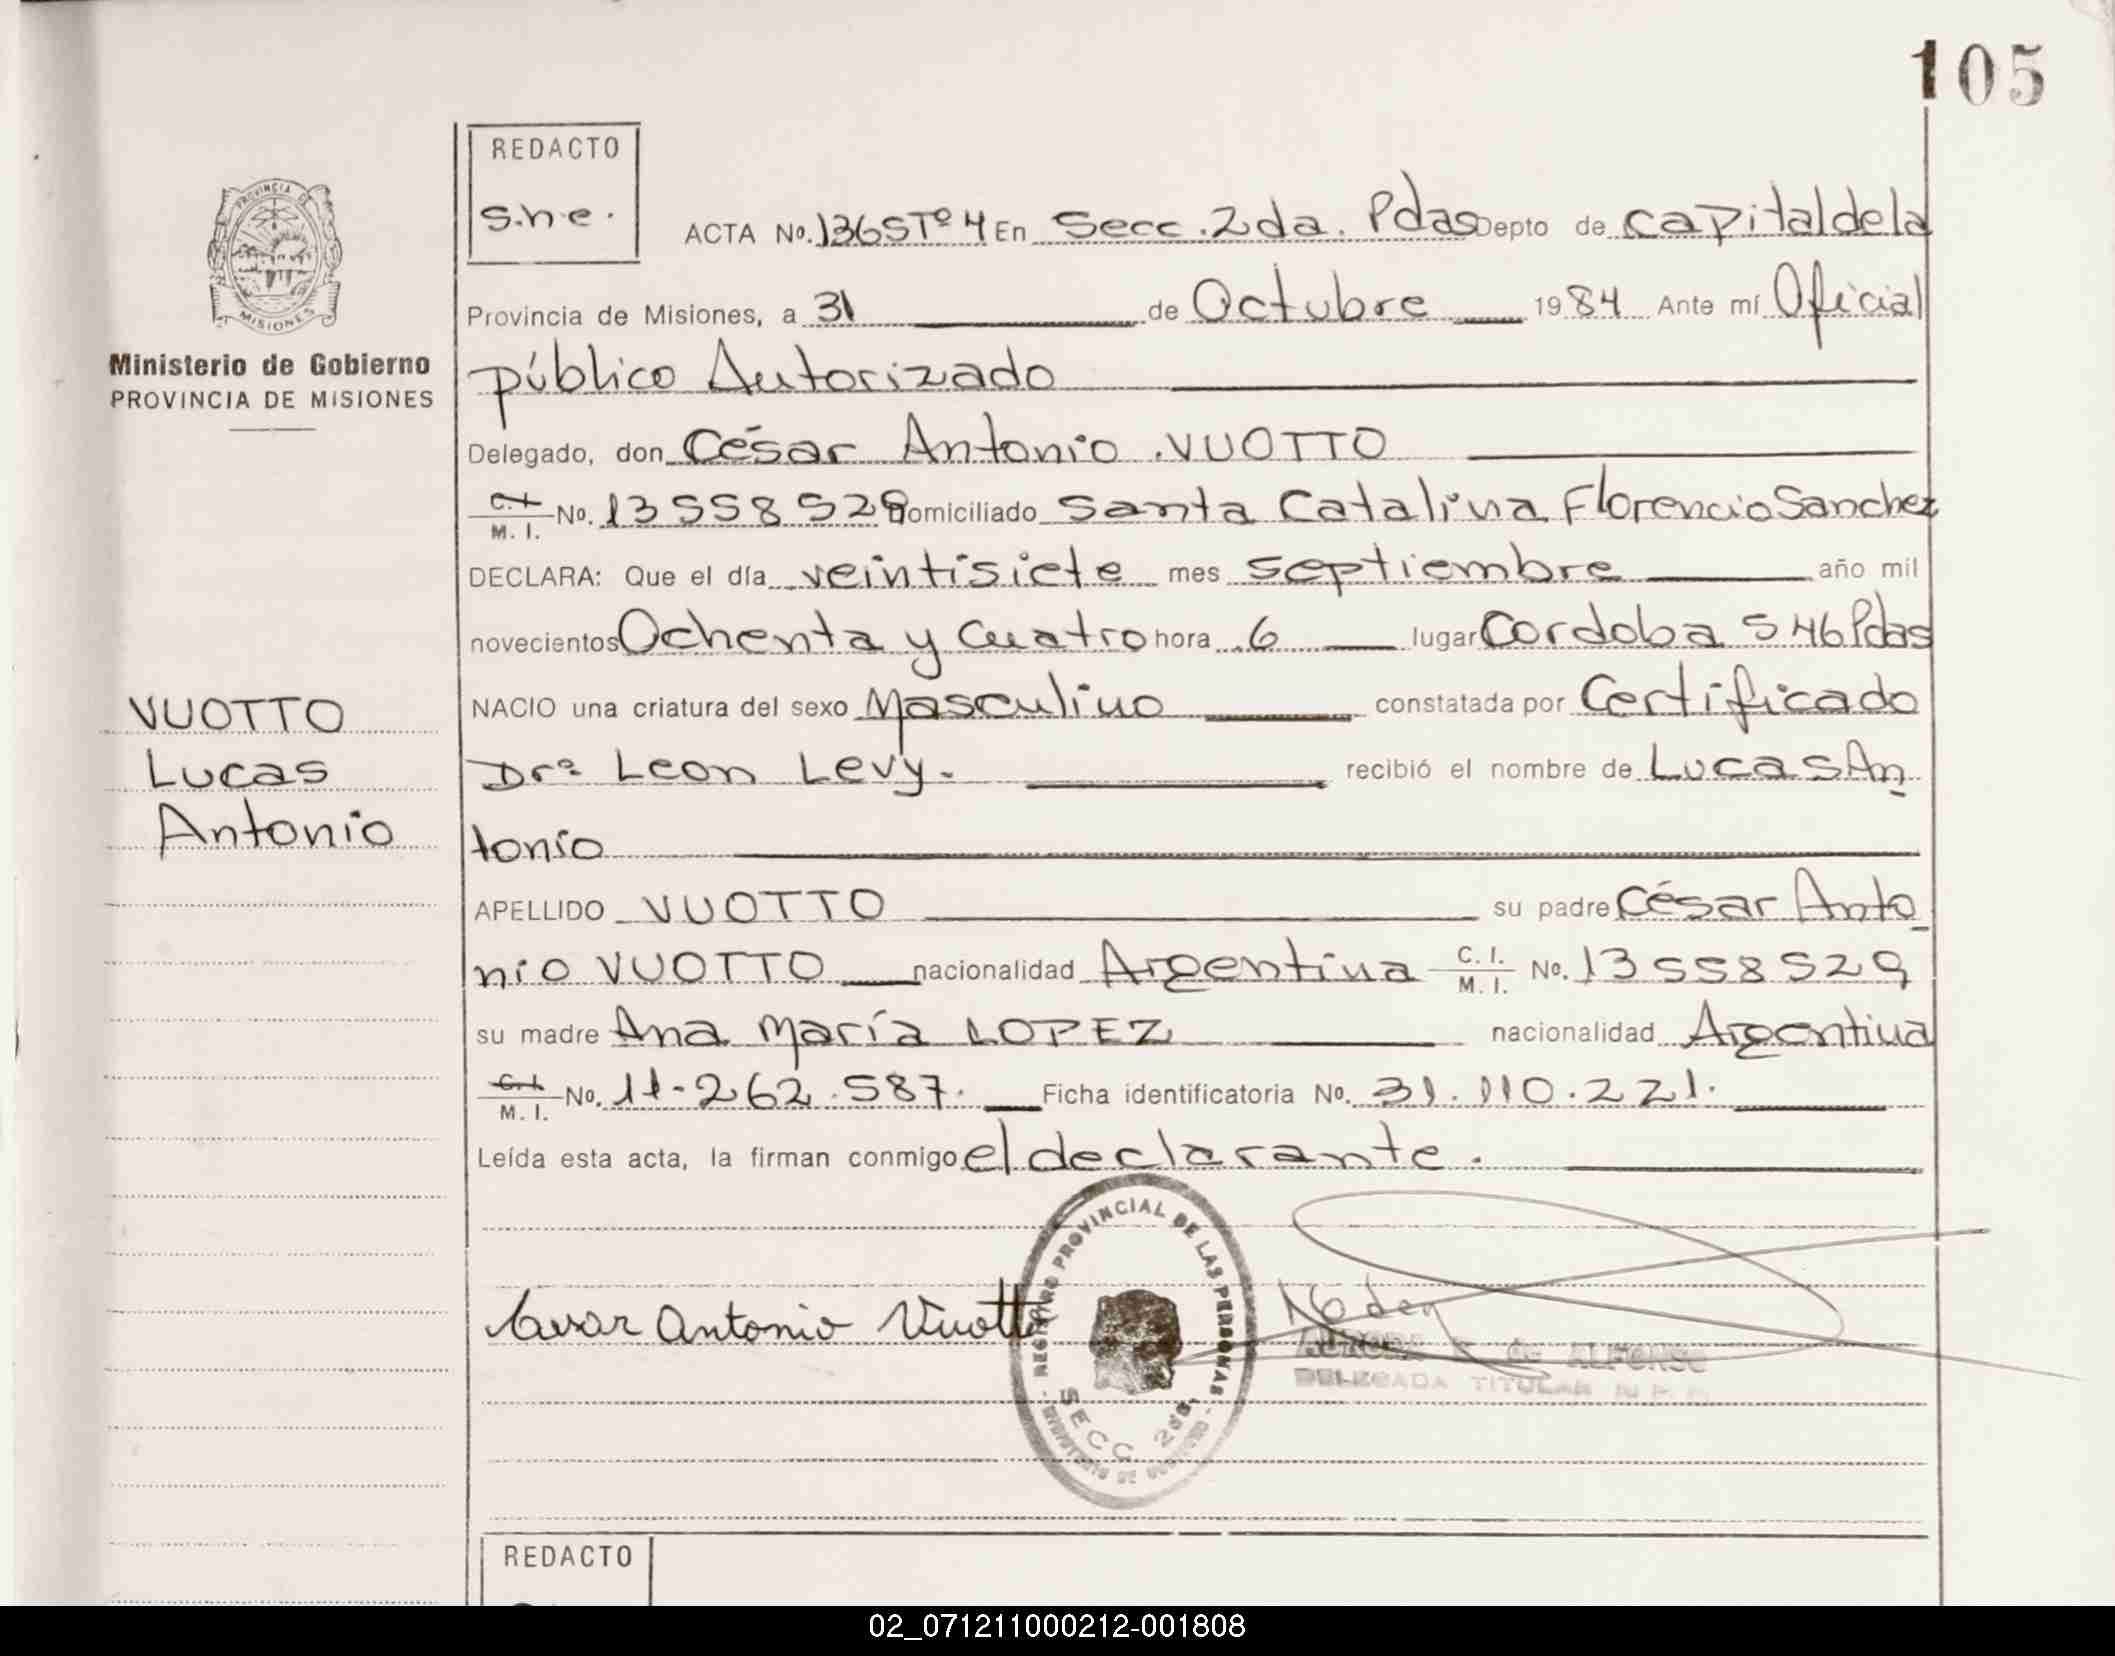 105
REDACTO
s.n.e.
ACTA No. 1365 Tº 4 En Secc. 2da. Pdas Depto de capital de la
PROVINCIA DE
MISIONES
Provincia de Misiones, a 31 de Octubre 1984 Ante mí Oficial
Ministerio de Gobierno
PROVINCIA DE MISIONES
público Autorizado
Delegado, don César Antonio VUOTTO
C.I. M.I. No. 13558529 Domiciliado Santa Catalina Florencio Sanchez
DECLARA: Que el día veintisiete mes septiembre año mil
novecientos Ochenta y Cuatro hora 6 lugar Cordoba 546 Pdas
NACIO una criatura del sexo Masculino constatada por Certificado
Drª Leon Levy. recibió el nombre de Lucas An
tonio
VUOTTO
Lucas
Antonio
APELLIDO VUOTTO su padre César Anto
nio VUOTTO nacionalidad Argentina C.I. M.I. No. 13558529
su madre Ana María LOPEZ nacionalidad Argentina
C.I. M.I. No. 11-262.587. Ficha identificatoria No. 31.110.221.
Leída esta acta, la firman conmigo el declarante.
Cesar Antonio Vuotto
REGISTRO PROVINCIAL DE LAS PERSONAS
SECC. 2da.
MINISTERIO DE GOBIERNO
de ALFONSO
DELEGADA TITULAR
REDACTO
02_071211000212-001808